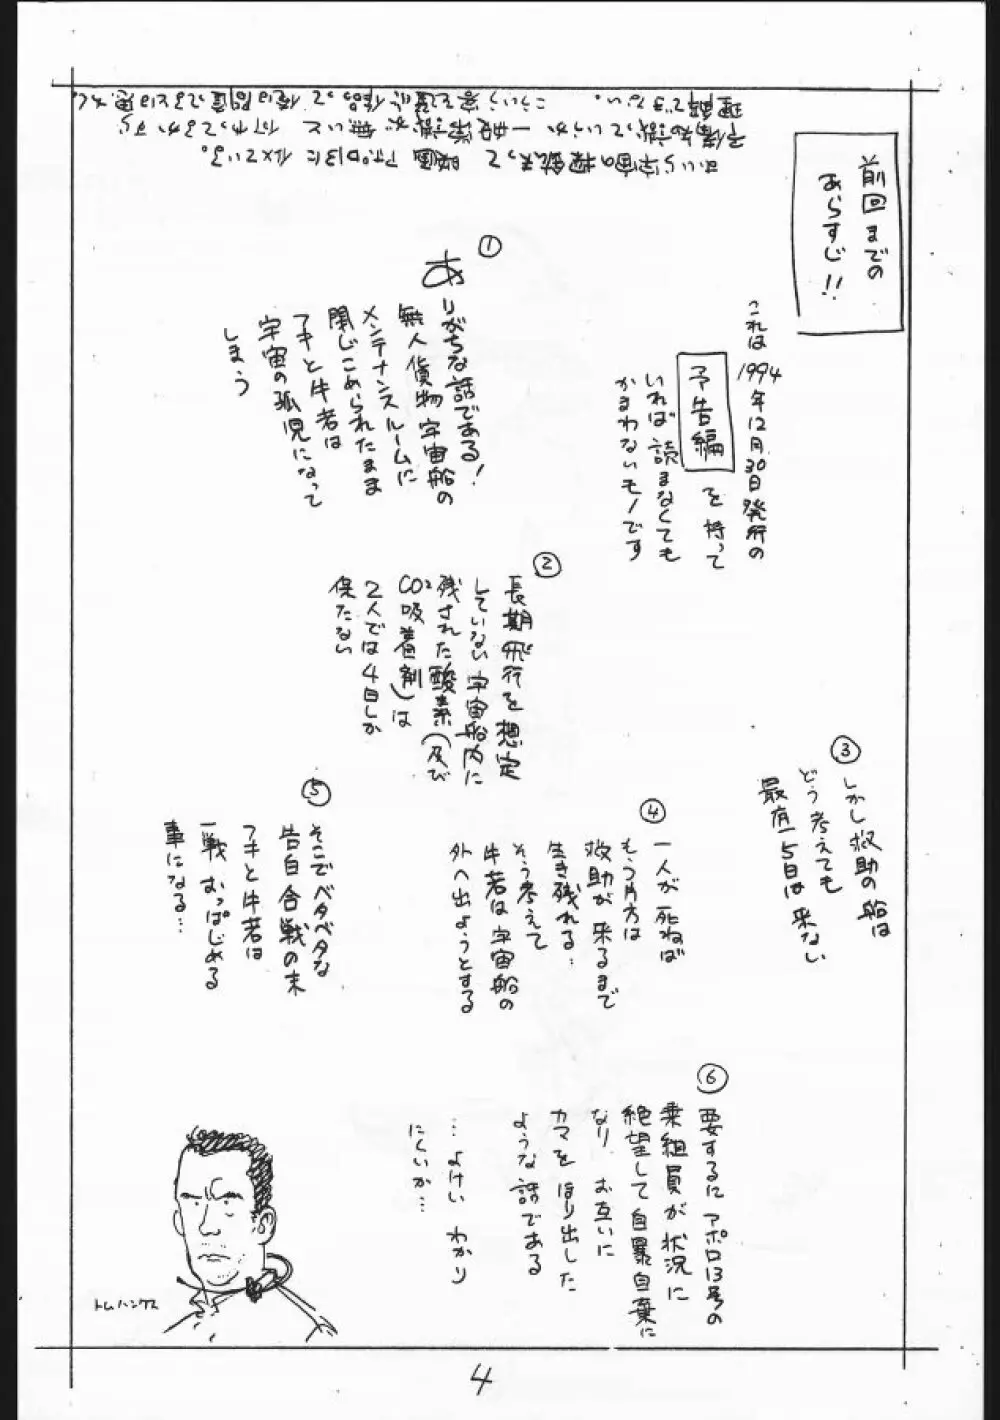 前回までの
あらすじ!!
これは1994年12月30日発行の
予告編を持って
いれば読まなくても
かまわないモノです
①
ありがちな話である!
無人貨物宇宙船の
メンテナンスルームに
閉じこめられたまま
アキと牛若は
宇宙の孤児になって
しまう
②
長期飛行を想定
していない宇宙船内に
残された酸素(及び
CO²吸着剤)は
2人では4日しか
保たない
③
しかし救助の船は
どう考えても
最有5日は来ない
④
一人が死ねば
もう片方は
救助が来るまで
生き残れる…
そう考えて
牛若は宇宙船の
外へ出ようとする
⑤
そこでベタベタな
告白合戦の末
アキと牛若は
一戦おっぱじめる
事になる…
⑥
要するにアポロ13号の
乗組員が状況に
絶望して自暴自棄に
なり お互いに
カマをほり出した
ような話である
…よけいわかり
にくいか…
トムハンクス
4